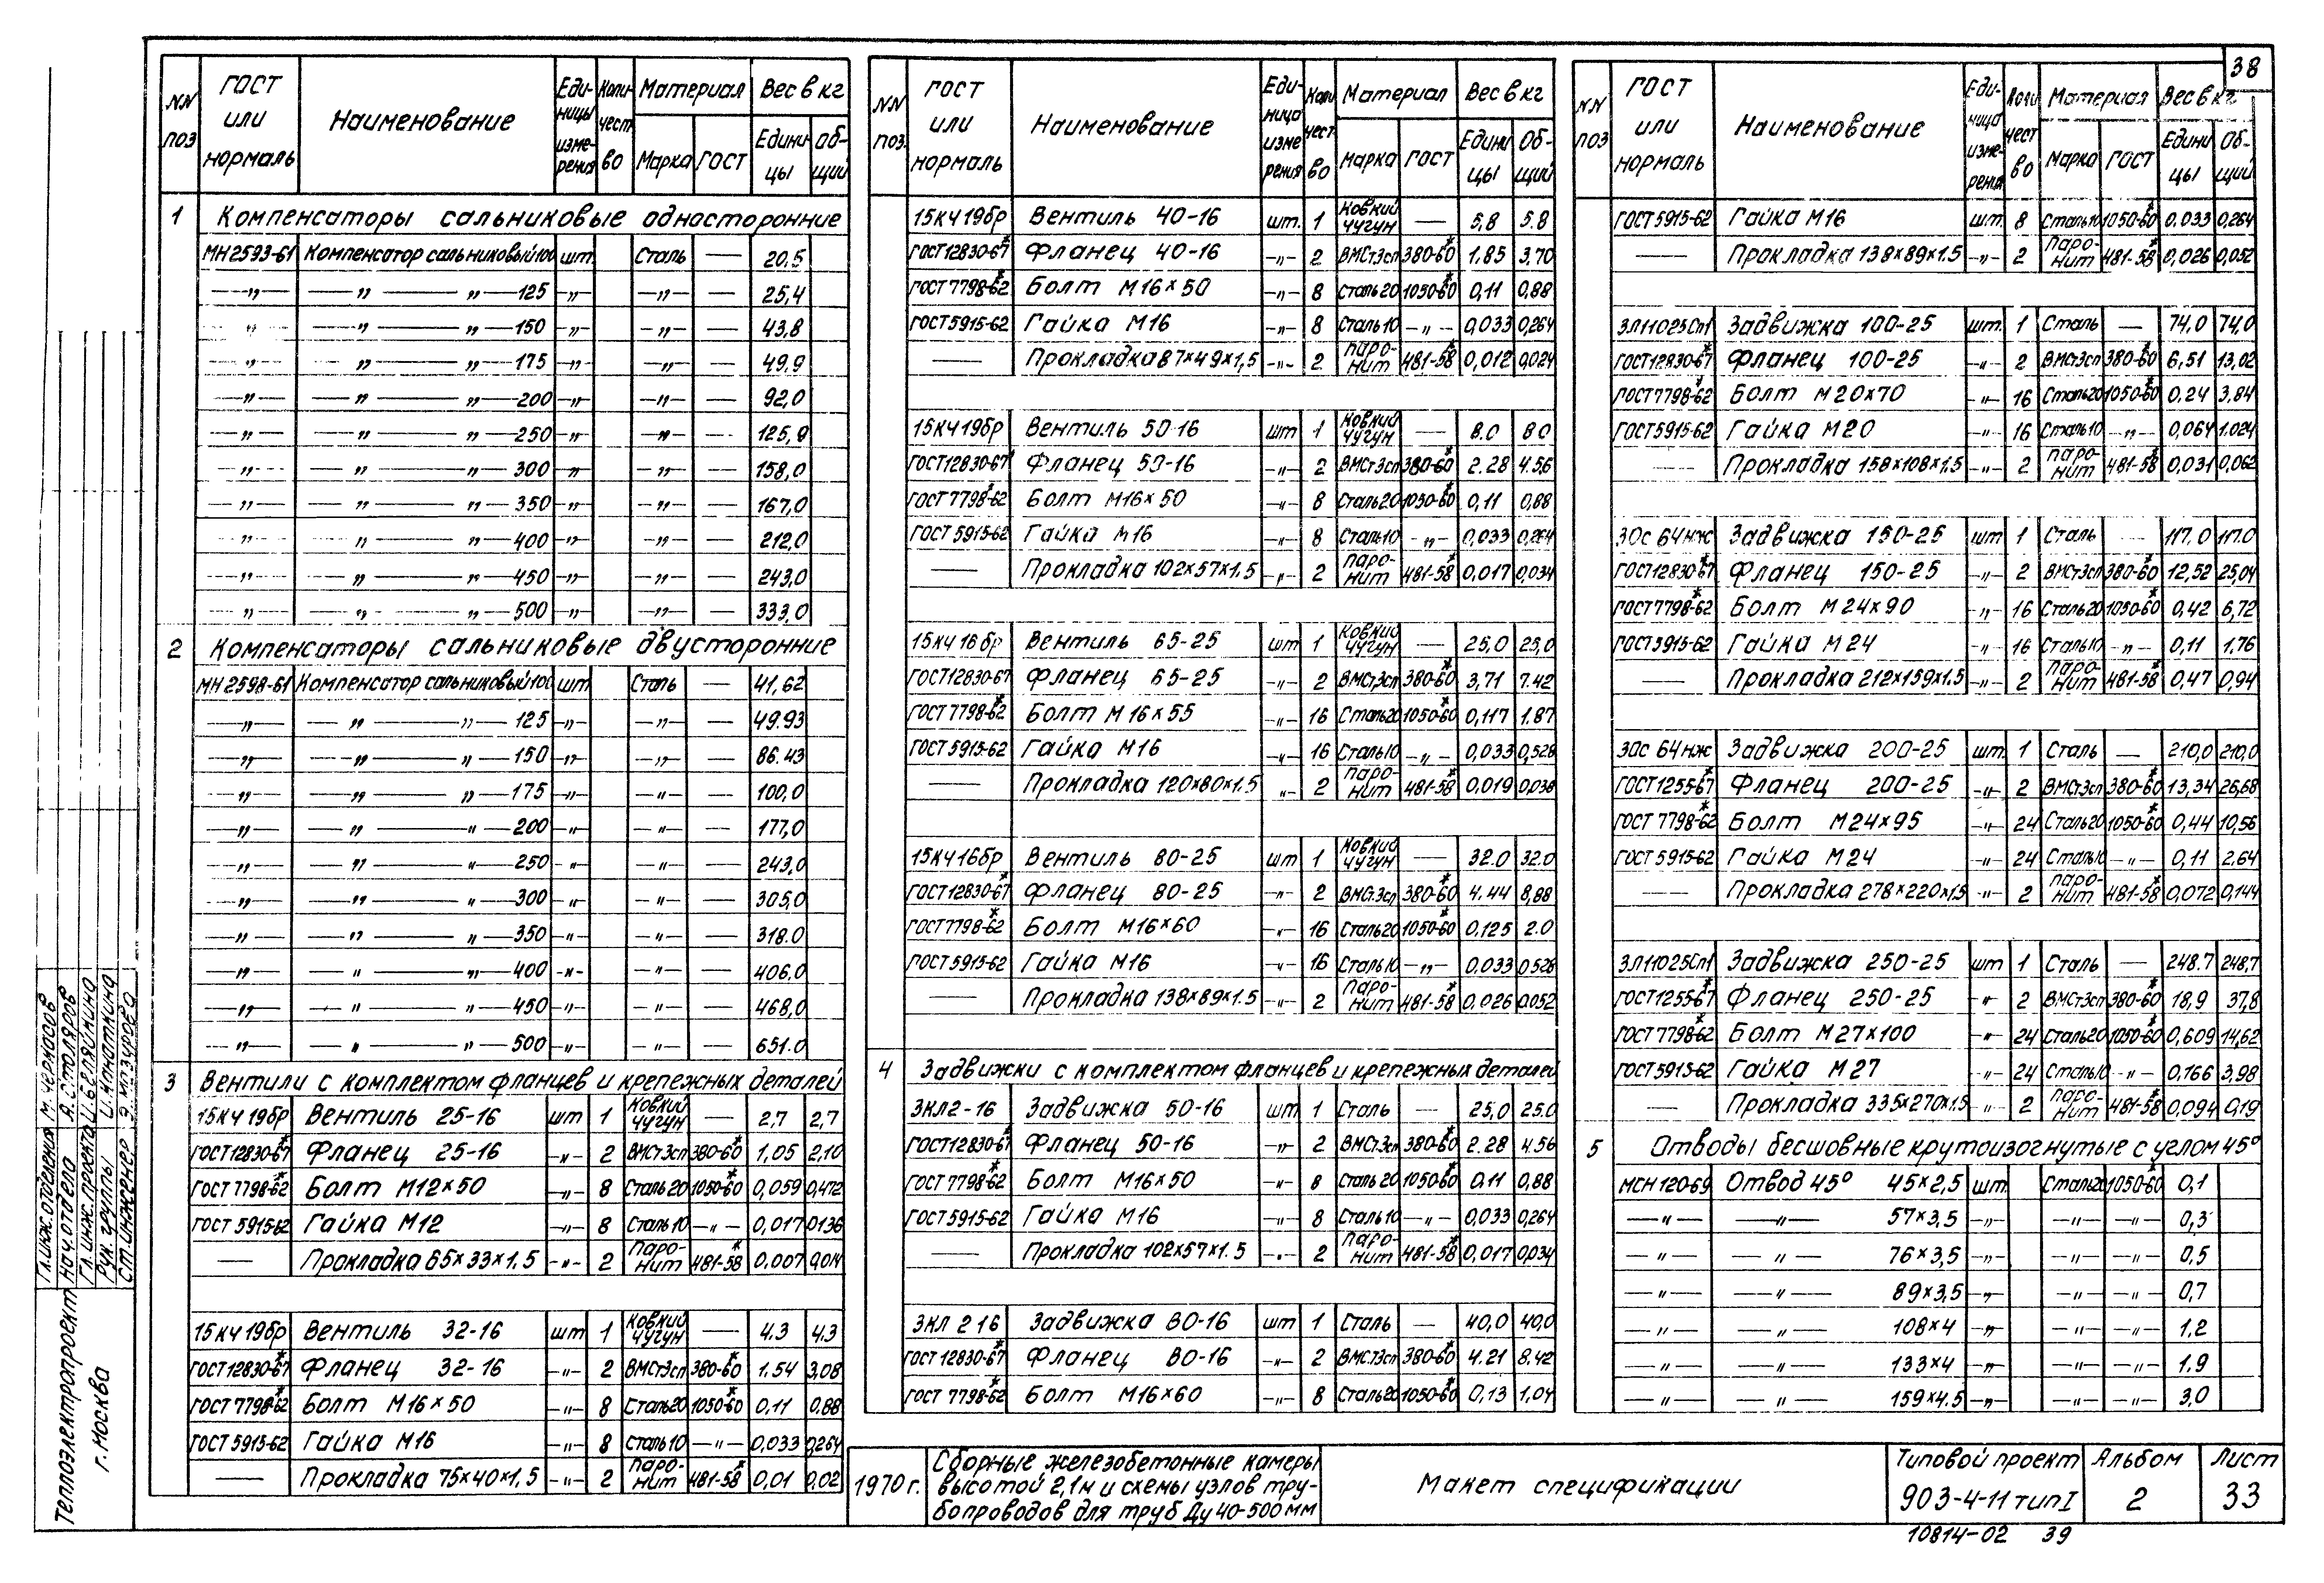 38
NN поз | ГОСТ или нормаль | Наименование | Единицы измерения | Количество | Материал Марка | ГОСТ | Вес в кг Единицы | Общий
1 Компенсаторы сальниковые односторонние
МН2593-61 Компенсатор сальниковый 100 шт. Сталь — 20,5
—"— —"— "—125 —"— —"— — 25,4
—"— —"— "—150 —"— —"— — 43,8
—"— —"— "—175 —"— —"— — 49,9
—"— —"— "—200 —"— —"— — 92,0
—"— —"— "—250 —"— —"— — 125,9
—"— —"— "—300 —"— —"— — 158,0
—"— —"— "—350 —"— —"— — 167,0
—"— —"— "—400 —"— —"— — 212,0
—"— —"— "—450 —"— —"— — 243,0
—"— —"— "—500 —"— —"— — 333,0
2 Компенсаторы сальниковые двусторонние
МН2598-61 Компенсатор сальниковый 100 шт. Сталь — 41,62
—"— —"— "—125 —"— —"— — 49.93
—"— —"— "—150 —"— —"— — 86.43
—"— —"— "—175 —"— —"— — 100,0
—"— —"— "—200 —"— —"— — 177,0
—"— —"— "—250 —"— —"— — 243,0
—"— —"— "—300 —"— —"— — 305,0
—"— —"— "—350 —"— —"— — 318.0
—"— —"— "—400 —"— —"— — 406,0
—"— —"— "—450 —"— —"— — 468,0
—"— —"— "—500 —"— —"— — 651.0
3 Вентили с комплектом фланцев и крепежных деталей
15кч19бр Вентиль 25-16 шт 1 Ковкий чугун — 2,7 2,7
ГОСТ12830-67* Фланец 25-16 —"— 2 ВМСт3сп 380-60* 1,05 2,10
ГОСТ 7798-62* Болт М12×50 —"— 8 Сталь 20 1050-60* 0,059 0,472
ГОСТ 5915-62 Гайка М12 —"— 8 Сталь 10 —"— 0,017 0136
— Прокладка 65×33×1,5 —"— 2 Паронит 481-58* 0,007 0,014
15кч19бр Вентиль 32-16 шт 1 Ковкий чугун — 4.3 4,3
ГОСТ12830-67* Фланец 32-16 —"— 2 ВМСт3сп 380-60* 1.54 3,08
ГОСТ 7798-62* Болт М16×50 —"— 8 Сталь20 1050-60* 0,11 0,88
ГОСТ 5915-62 Гайка М16 —"— 8 Сталь10 —"— 0,033 0,264
— Прокладка 75×40×1,5 —"— 2 Паронит 481-58* 0,01 0,02
NN поз. | ГОСТ или нормаль | Наименование | Единица измерения | Количество | Материал Марка | ГОСТ | Вес в кг Единицы | Общий
15кч19бр Вентиль 40-16 шт. 1 Ковкий чугун — 5,8 5.8
ГОСТ12830-67* Фланец 40-16 —"— 2 ВМСт3сп 380-60* 1.85 3,70
ГОСТ 7798-62* Болт М16×50 —"— 8 Сталь20 1050-60* 0,11 0,88
ГОСТ5915-62 Гайка М16 —"— 8 Сталь10 —"— 0,033 0,264
— Прокладка 87×49×1,5 —"— 2 Паронит 481-58* 0,012 0,024
15кч19бр Вентиль 50-16 шт 1 Ковкий чугун — 8.0 8 0
ГОСТ12830-67* Фланец 50-16 —"— 2 ВМСт3сп 380-60* 2.28 4.56
ГОСТ 7798-62* Болт М16×50 —"— 8 Сталь20 1050-60* 0,11 0,88
ГОСТ 5915-62 Гайка М16 —"— 8 Сталь10 —"— 0,033 0,264
— Прокладка 102×57×1.5 —"— 2 Паронит 481-58* 0,017 0,034
15кч16бр Вентиль 65-25 шт 1 Ковкий чугун — 25,0 25,0
ГОСТ12830-67 Фланец 65-25 —"— 2 ВМСт3сп 380-60* 3,71 7.42
ГОСТ 7798-62* Болт М16×55 —"— 16 Сталь20 1050-60* 0,117 1.87
ГОСТ 5915-62 Гайка М16 —"— 16 Сталь10 —"— 0,033 0,528
— Прокладка 120×80×1.5 —"— 2 Паронит 481-58* 0,019 0,038
15кч16бр Вентиль 80-25 шт 1 Ковкий чугун — 32.0 32.0
ГОСТ12830-67* Фланец 80-25 —"— 2 ВМСт.3сп 380-60* 4.44 8,88
ГОСТ 7798-62* Болт М16×60 —"— 16 Сталь20 1050-60* 0,125 2.0
ГОСТ5915-62 Гайка М16 —"— 16 Сталь10 —"— 0,033 0,528
— Прокладка 138×89×1.5 —"— 2 Паронит 481-58* 0,026 0,052
4 Задвижки с комплектом фланцев и крепежных деталей
ЗКЛ2-16 Задвижка 50-16 шт 1 Сталь — 25,0 25.0
ГОСТ12830-67* Фланец 50-16 —"— 2 ВМСт.3сп 380-60* 2.28 4.56
ГОСТ 7798-62* Болт М16×50 —"— 8 Сталь 20 1050-60* 0.11 0,88
ГОСТ 5915-62 Гайка М16 —"— 8 Сталь10 —"— 0,033 0,264
— Прокладка 102×57×1.5 —"— 2 Паронит 481-58* 0,017 0,034
ЗКЛ 2 16 Задвижка 80-16 шт 1 Сталь — 40,0 40,0
ГОСТ 12830-67* Фланец 80-16 —"— 2 ВМСт.3сп 380-60* 4.21 8.42
ГОСТ 7798-62* Болт М16×60 —"— 8 Сталь20 1050-60* 0,13 1,04
NN поз | ГОСТ или нормаль | Наименование | Единица измерения | Количество | Материал Марка | ГОСТ | Вес в кг Единицы | Общий
ГОСТ5915-62 Гайка М16 шт. 8 Сталь10 1050-60* 0.033 0,264
— Прокладка 138×89×1.5 —"— 2 Паронит 481-58* 0,026 0,052
ЗЛ11025Сп1 Задвижка 100-25 шт. 1 Сталь — 74,0 74,0
ГОСТ12830-67* Фланец 100-25 —"— 2 ВМСт3сп 380-60* 6,51 13,02
ГОСТ7798-62* Болт М20×70 —"— 16 Сталь20 1050-60* 0,24 3,84
ГОСТ5915-62 Гайка М20 —"— 16 Сталь10 —"— 0,064 1.024
— Прокладка 158×108×1,5 —"— 2 Паронит 481-58* 0,031 0,062
30с 64нж Задвижка 150-25 шт 1 Сталь — 117.0 117.0
ГОСТ12830-67* Фланец 150-25 —"— 2 ВМСт3сп 380-60* 12,52 25,04
ГОСТ7798-62* Болт М24×90 —"— 16 Сталь20 1050-60* 0,42 6,72
ГОСТ5915-62 Гайка М24 —"— 16 Сталь10 —"— 0,11 1,76
— Прокладка 212×159×1.5 —"— 2 Паронит 481-58* 0,47 0,94
30с 64нж Задвижка 200-25 шт. 1 Сталь — 210,0 210,0
ГОСТ1255-67* Фланец 200-25 —"— 2 ВМСт3сп 380-60* 13,34 26,68
ГОСТ 7798-62* Болт М24×95 —"— 24 Сталь20 1050-60* 0,44 10,56
ГОСТ 5915-62 Гайка М24 —"— 24 Сталь10 —"— 0,11 2.64
— Прокладка 278×220×1,5 —"— 2 Паронит 481-58* 0,072 0,144
ЗЛ11025Сп1 Задвижка 250-25 шт 1 Сталь — 248.7 248,7
ГОСТ1255-67* Фланец 250-25 —"— 2 ВМСт3сп 380-60* 18,9 37,8
ГОСТ7798-62* Болт М27×100 —"— 24 Сталь20 1050-60* 0,609 14,62
ГОСТ5915-62 Гайка М27 —"— 24 Сталь10 —"— 0,166 3,98
— Прокладка 335×270×1,5 —"— 2 Паронит 481-58* 0,094 0,19
5 Отводы бесшовные крутоизогнутые с углом 45°
МСН120-69 Отвод 45° 45×2,5 шт. Сталь20 1050-60* 0,1
—"— —"— 57×3,5 —"— —"— —"— 0,3
—"— —"— 76×3,5 —"— —"— —"— 0,5
—"— —"— 89×3,5 —"— —"— —"— 0,7
—"— —"— 108×4 —"— —"— —"— 1.2
—"— —"— 133×4 —"— —"— —"— 1.9
—"— —"— 159×4.5 —"— —"— —"— 3,0
1970г.
Сборные железобетонные камеры
высотой 2,1м и схемы узлов тру-
бопроводов для труб Ду 40-500мм
Макет спецификации
Типовой проект
903-4-11 тип I
Альбом
2
Лист
33
10814-02 39
Теплоэлектропроект
г. Москва
Гл.инж.отделения М. Черкасов
Нач.отдела А. Столяров
Гл. инж. проекта
Рук. группы
Ст. инженер